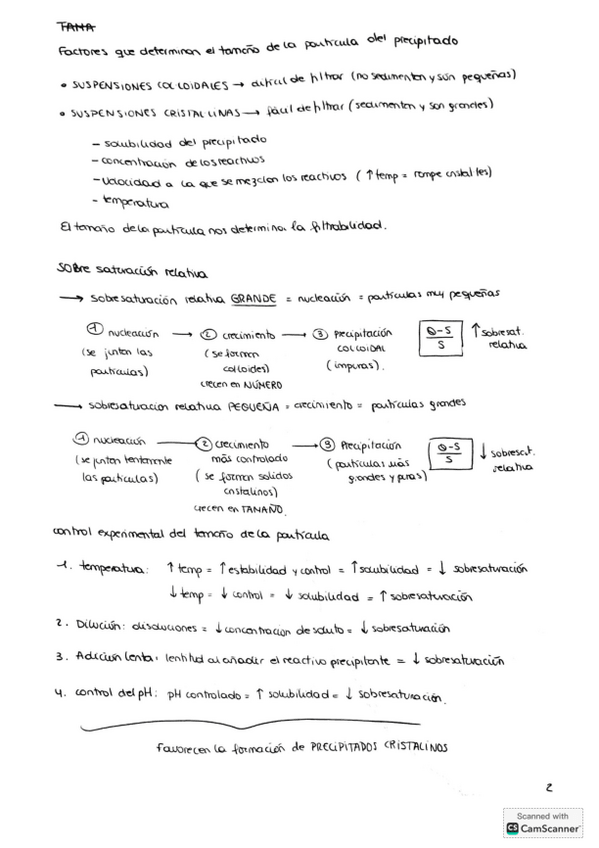 TAMA
Factores que determinan el tamaño de la partícula del precipitado
• SUSPENSIONES COLOIDALES → difícil de filtrar (no sedimentan y son pequeñas)
• SUSPENSIONES CRISTALINAS → fácil de filtrar (sedimentan y son grandes)
- solubilidad del precipitado
- concentración de los reactivos
- velocidad a la que se mezclan los reactivos (↑ temp = rompe cristales)
- temperatura
El tamaño de la partícula nos determina la filtrabilidad.
Sobre saturación relativa
→ sobresaturación relativa GRANDE = nucleación = partículas muy pequeñas
① nucleación → ② crecimiento → ③ Precipitación Q-S ↑ sobresat.
(se juntan las (se forman COLOIDAL S relativa
partículas) coloides) (impuras).
crecen en NÚMERO
→ sobresaturación relativa PEQUEÑA = crecimiento = partículas grandes
① nucleación → ② crecimiento → ③ Precipitación Q-S ↓ sobresat.
(se juntan lentamente más controlado (partículas más S relativa
las partículas) (se forman solidos grandes y puras)
cristalinos)
crecen en TAMAÑO.
control experimental del tamaño de la partícula
1. temperatura: ↑ temp = ↑ estabilidad y control = ↑ solubilidad = ↓ sobresaturación
↓ temp = ↓ control = ↓ solubilidad = ↑ sobresaturación
2. Dilución: disoluciones = ↓ concentración de soluto = ↓ sobresaturación
3. Adición lenta: lentitud al añadir el reactivo precipitante = ↓ sobresaturación
4. control del pH: pH controlado = ↑ solubilidad = ↓ sobresaturación.
favorecen la formación de PRECIPITADOS CRISTALINOS
2
Scanned with
CS CamScanner